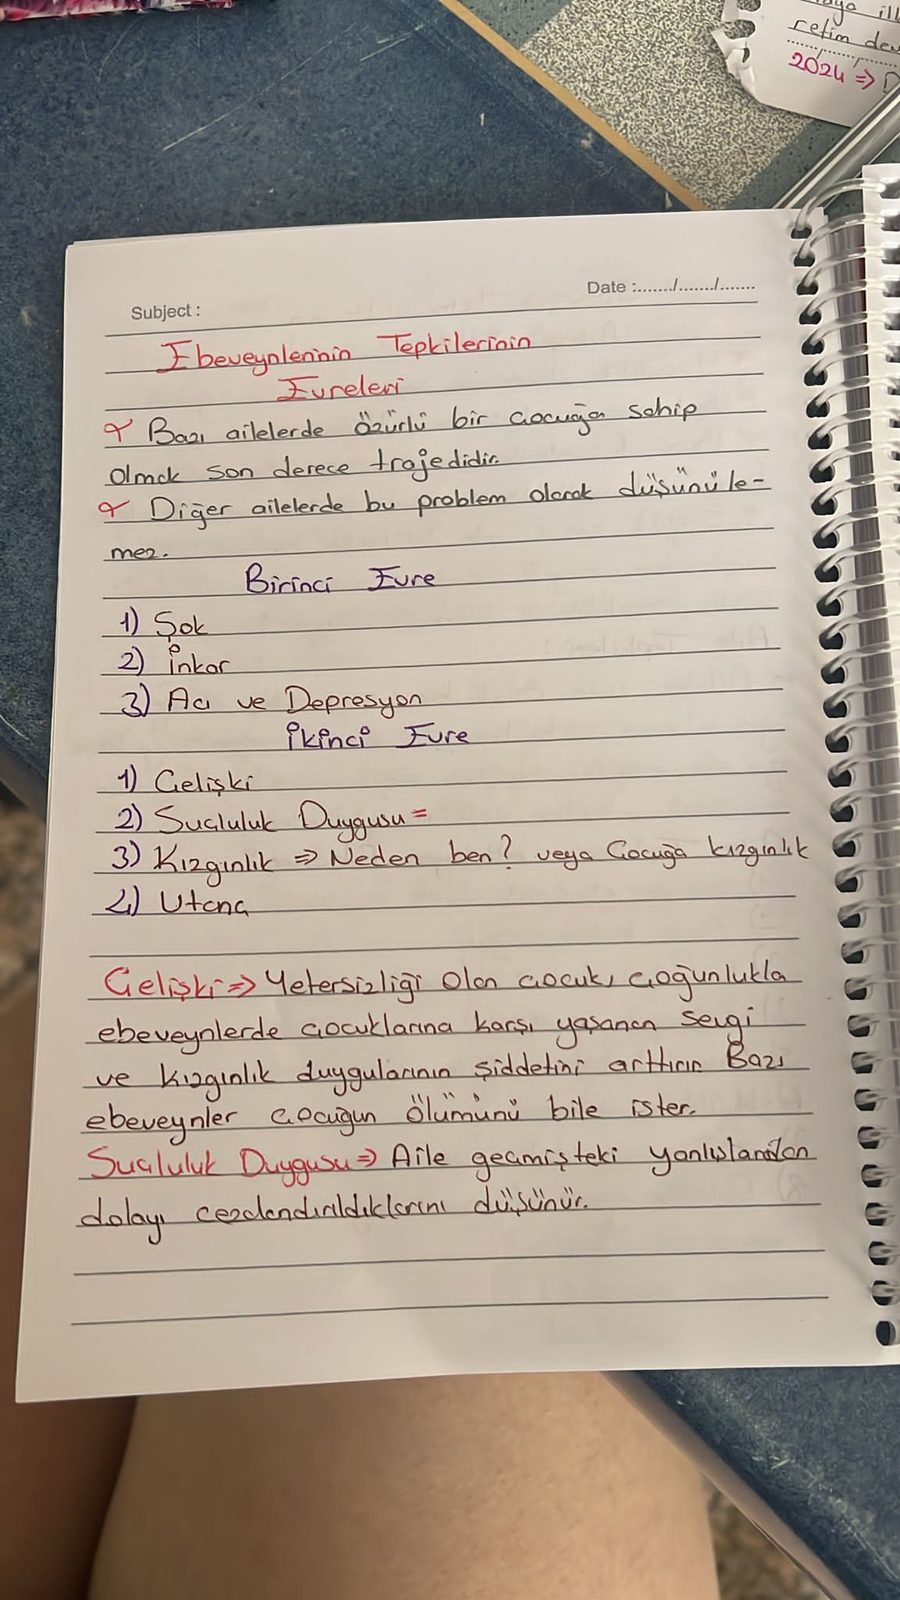 aya ill
retim dev
2024 => D
Date :......./......./.......
Subject :
Ebeveynlerinin Tepkilerinin
Evreleri
Bazı ailelerde özürlü bir çocuğa sahip
olmak son derece trajedidir.
Diğer ailelerde bu problem olarak düşünüle-
mez.
Birinci Evre
1) Şok
2) İnkar
3) Acı ve Depresyon
İkinci Evre
1) Çelişki
2) Suçluluk Duygusu =
3) Kızgınlık => Neden ben? veya Çocuğa kızgınlık
4) Utanç
Çelişki => Yetersizliği olan çocuk, çoğunlukla
ebeveynlerde çocuklarına karşı yaşanan sevgi
ve kızgınlık duygularının şiddetini arttırır. Bazı
ebeveynler çocuğun ölümünü bile ister.
Suçluluk Duygusu => Aile geçmişteki yanlışlarından
dolayı cezalandırıldıklarını düşünür.